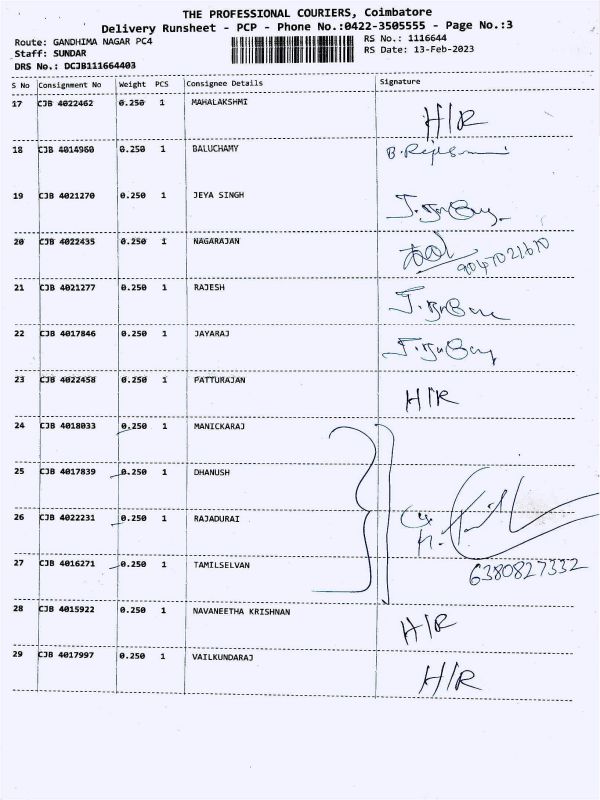 THE PROFESSIONAL COURIERS, Coimbatore
Delivery Runsheet - PCP - Phone No.:0422-3505555 - Page No.:3
Route: GANDHIMA NAGAR PC4
RS No.: 1116644
Staff: SUNDAR
RS Date: 13-Feb-2023
DRS No.: DCJB111664403
S No Consignment No Weight PCS Consignee Details Signature
17 CJB 4022462 0.250 1 MAHALAKSHMI H/R
18 CJB 4014960 0.250 1 BALUCHAMY
19 CJB 4021270 0.250 1 JEYA SINGH
20 CJB 4022435 0.250 1 NAGARAJAN 9047021610
21 CJB 4021277 0.250 1 RAJESH
22 CJB 4017846 0.250 1 JAYARAJ
23 CJB 4022458 0.250 1 PATTURAJAN H/R
24 CJB 4018033 0.250 1 MANICKARAJ
25 CJB 4017839 0.250 1 DHANUSH
26 CJB 4022231 0.250 1 RAJADURAI
27 CJB 4016271 0.250 1 TAMILSELVAN 6380827332
28 CJB 4015922 0.250 1 NAVANEETHA KRISHNAN H/R
29 CJB 4017997 0.250 1 VAILKUNDARAJ H/R